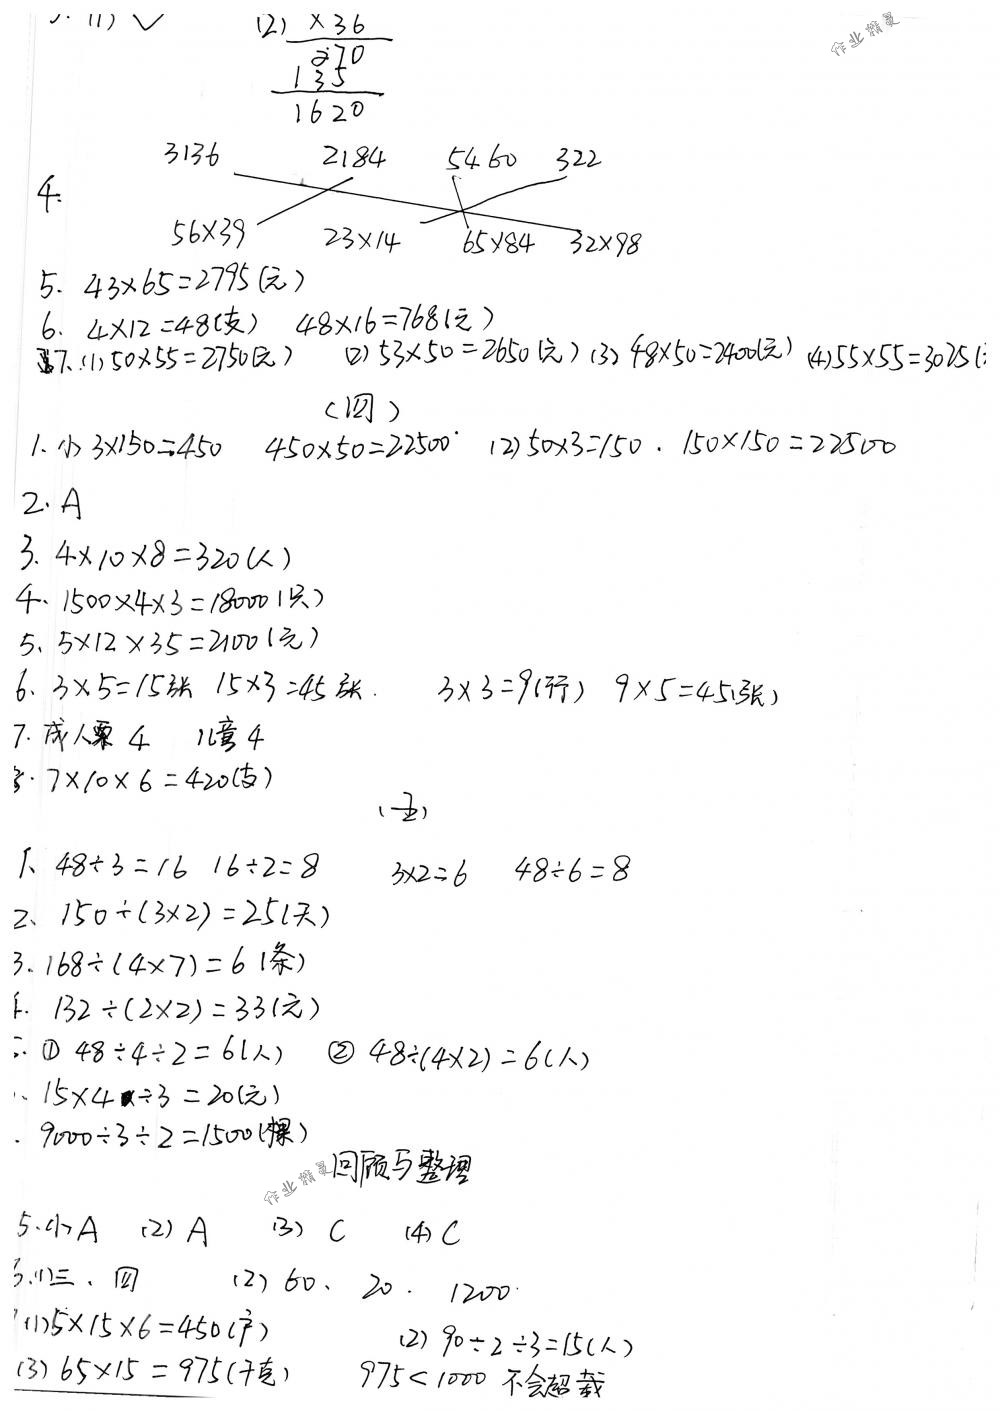 3. (1) ✓ (2) ×36
270
135
1620
作业精灵
3136 2184 5460 322
4.
56×39 23×14 65×84 32×98
5. 43×65=2795(元)
6. 4×12=48(支) 48×16=768(元)
7. (1) 50×55=2750(元) (2) 53×50=2650(元) (3) 48×50=2400(元) (4) 55×55=3025(
(四)
1. (1) 3×150=450 450×50=22500 (2) 50×3=150. 150×150=22500
2. A
3. 4×10×8=320(人)
4. 1500×4×3=18000(只)
5. 5×12×35=2100(元)
6. 3×5=15张 15×3=45张. 3×3=9(行) 9×5=45(张)
7. 成人票 4 儿童 4
7×10×6=420(支)
(五)
1. 48÷3=16 16÷2=8 3×2=6 48÷6=8
2. 150÷(3×2)=25(天)
3. 168÷(4×7)=6(条)
132÷(2×2)=33(元)
① 48÷4÷2=6(人) ② 48÷(4×2)=6(人)
15×4÷3=20(元)
9000÷3÷2=1500(棵)
作业精灵
回顾与整理
5. (1) A (2) A (3) C (4) C
(1) 三、四 (2) 60、20. 1200.
(1) 5×15×6=450(户) (2) 90÷2÷3=15(人)
(3) 65×15=975(千克) 975<1000 不会超载